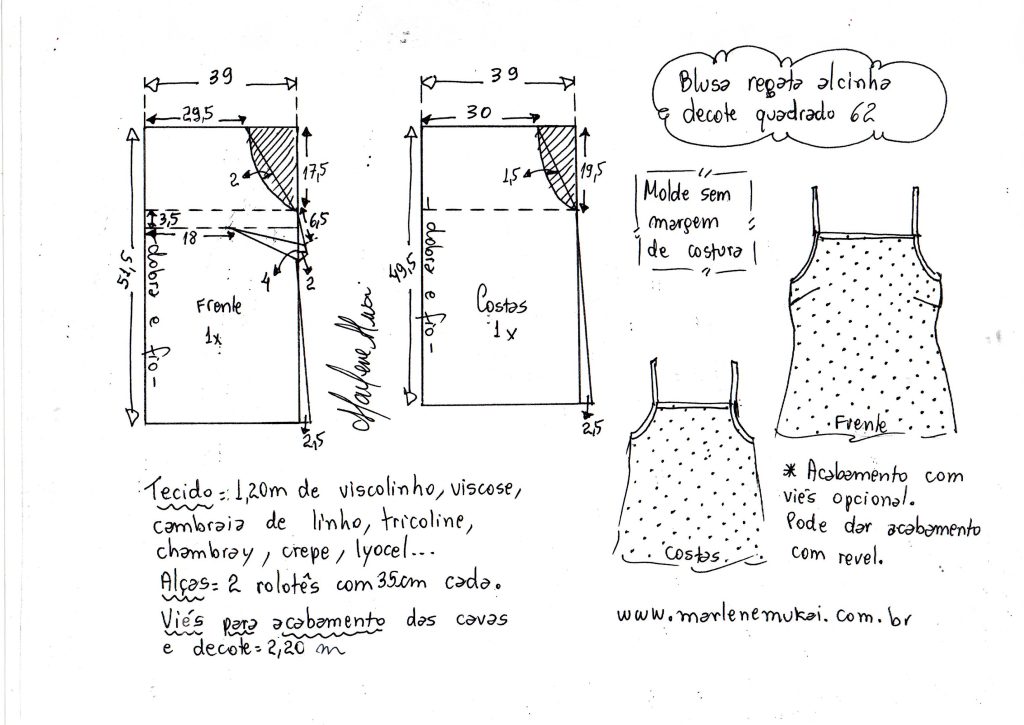 Blusa regata alcinha
e decote quadrado 62
Molde sem
margem
de costura
39
29,5
2
17,5
3,5
6,5
18
4
2
51,5
dobra e fio
Frente
1x
2,5
Marlene Mukai
39
30
1,5
19,5
49,5
dobra e fio
Costas
1x
2,5
Frente
Costas
* Acabamento com
viés opcional.
Pode dar acabamento
com revel.
Tecido = 1,20m de viscolinho, viscose,
cambraia de linho, tricoline,
chambray, crepe, lyocel...
Alças = 2 rolotês com 35cm cada.
Viés para acabamento das cavas
e decote = 2,20 m
www.marlenemukai.com.br